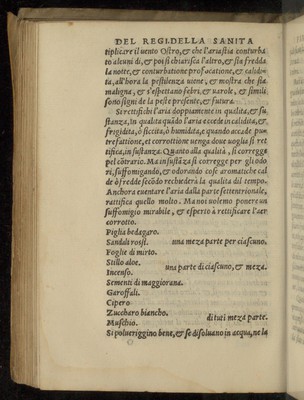 DEL REG. DELLA SANITA
tiplicare il uento Ostro, & che l'aria stia conturba
to alcuni dì, & poi si chiarisca l'altro, & stia fredda
la notte, & conturbatione
ta, all'hora la pestilenza uiene, & mostra che sia
maligna, & s'aspettano febri, & uarole, & simili
sono signi de la peste presente, & futura.
Si rettifichi l'aria doppiamente in qualita, & su-
stanza, In qualità quãdo l'aria eccede in calidita, &
frigidita, ò siccità, ò humidita, e quando accade pu-
trefattione, et corrottione uenga doue uoglia si ret
tifica, in sustanza. Quanto alla qualità, si corregge
pel cõtrario. Ma in sustãza si corregge per gli odo
ri, suffomigando, & odorando cose aromatiche cal
de ò fredde secõdo rechiederà la qualità di tempo.
Anchora euentare l'aria dalla parte settentrionale,
rattifica quello molto. Ma noi uolemo ponere un
suffomigio mirabile, & esperto à rettificare l'aer
corrotto.
Piglia bedegaro.
Sandali rossi. una meza parte per ciascuno,
Foglie di mirto.
Stillo aloe.
Incenso. una parte di ciascuno, & meza.
Sementi di maggiorana.
Garoffali.
Cipero
Zuccharo biancho. di tuti meza parte.
Muschio.
Si polueriggino bene, & se disoluano in acqua, ne la